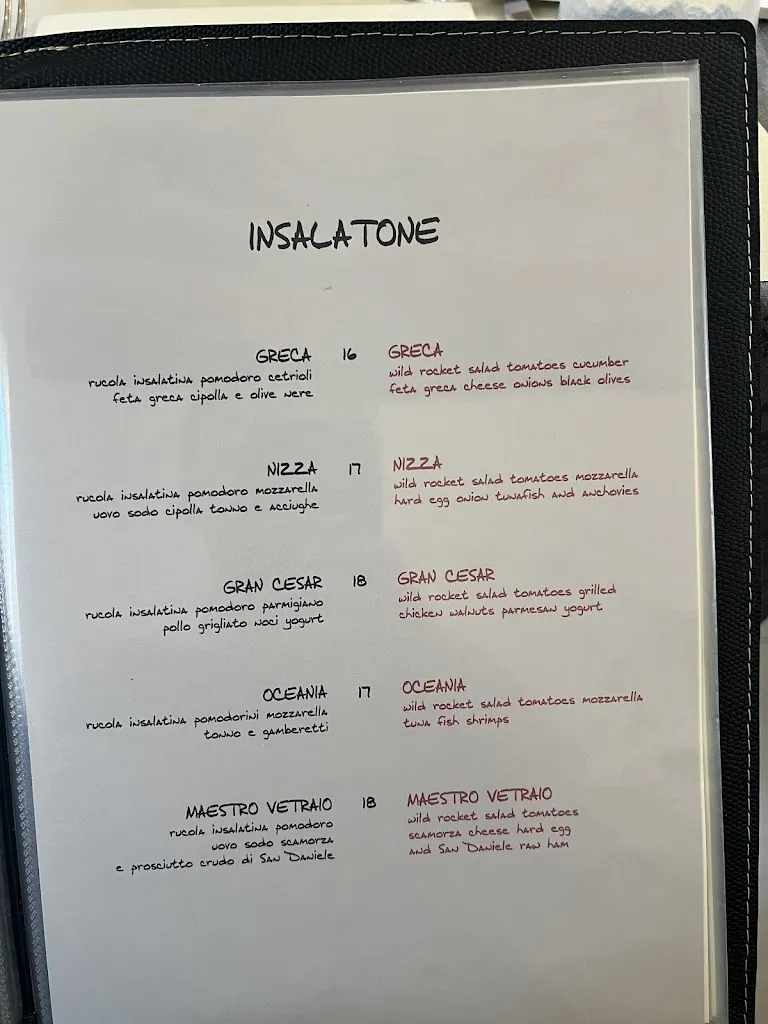 INSALATONE
GRECA 16 GRECA
rucola insalatina pomodoro cetrioli
feta greca cipolla e olive nere
wild rocket salad tomatoes cucumber
feta greca cheese onions black olives
NIZZA 17 NIZZA
rucola insalatina pomodoro mozzarella
uovo sodo cipolla tonno e acciughe
wild rocket salad tomatoes mozzarella
hard egg onion tunafish and anchovies
GRAN CESAR 18 GRAN CESAR
rucola insalatina pomodoro parmigiano
pollo grigliato noci yogurt
wild rocket salad tomatoes grilled
chicken walnuts parmesan yogurt
OCEANIA 17 OCEANIA
rucola insalatina pomodorini mozzarella
tonno e gamberetti
wild rocket salad tomatoes mozzarella
tuna fish shrimps
MAESTRO VETRAIO 18 MAESTRO VETRAIO
rucola insalatina pomodoro
uovo sodo scamorza
e prosciutto crudo di San Daniele
wild rocket salad tomatoes
scamorza cheese hard egg
and San Daniele raw ham